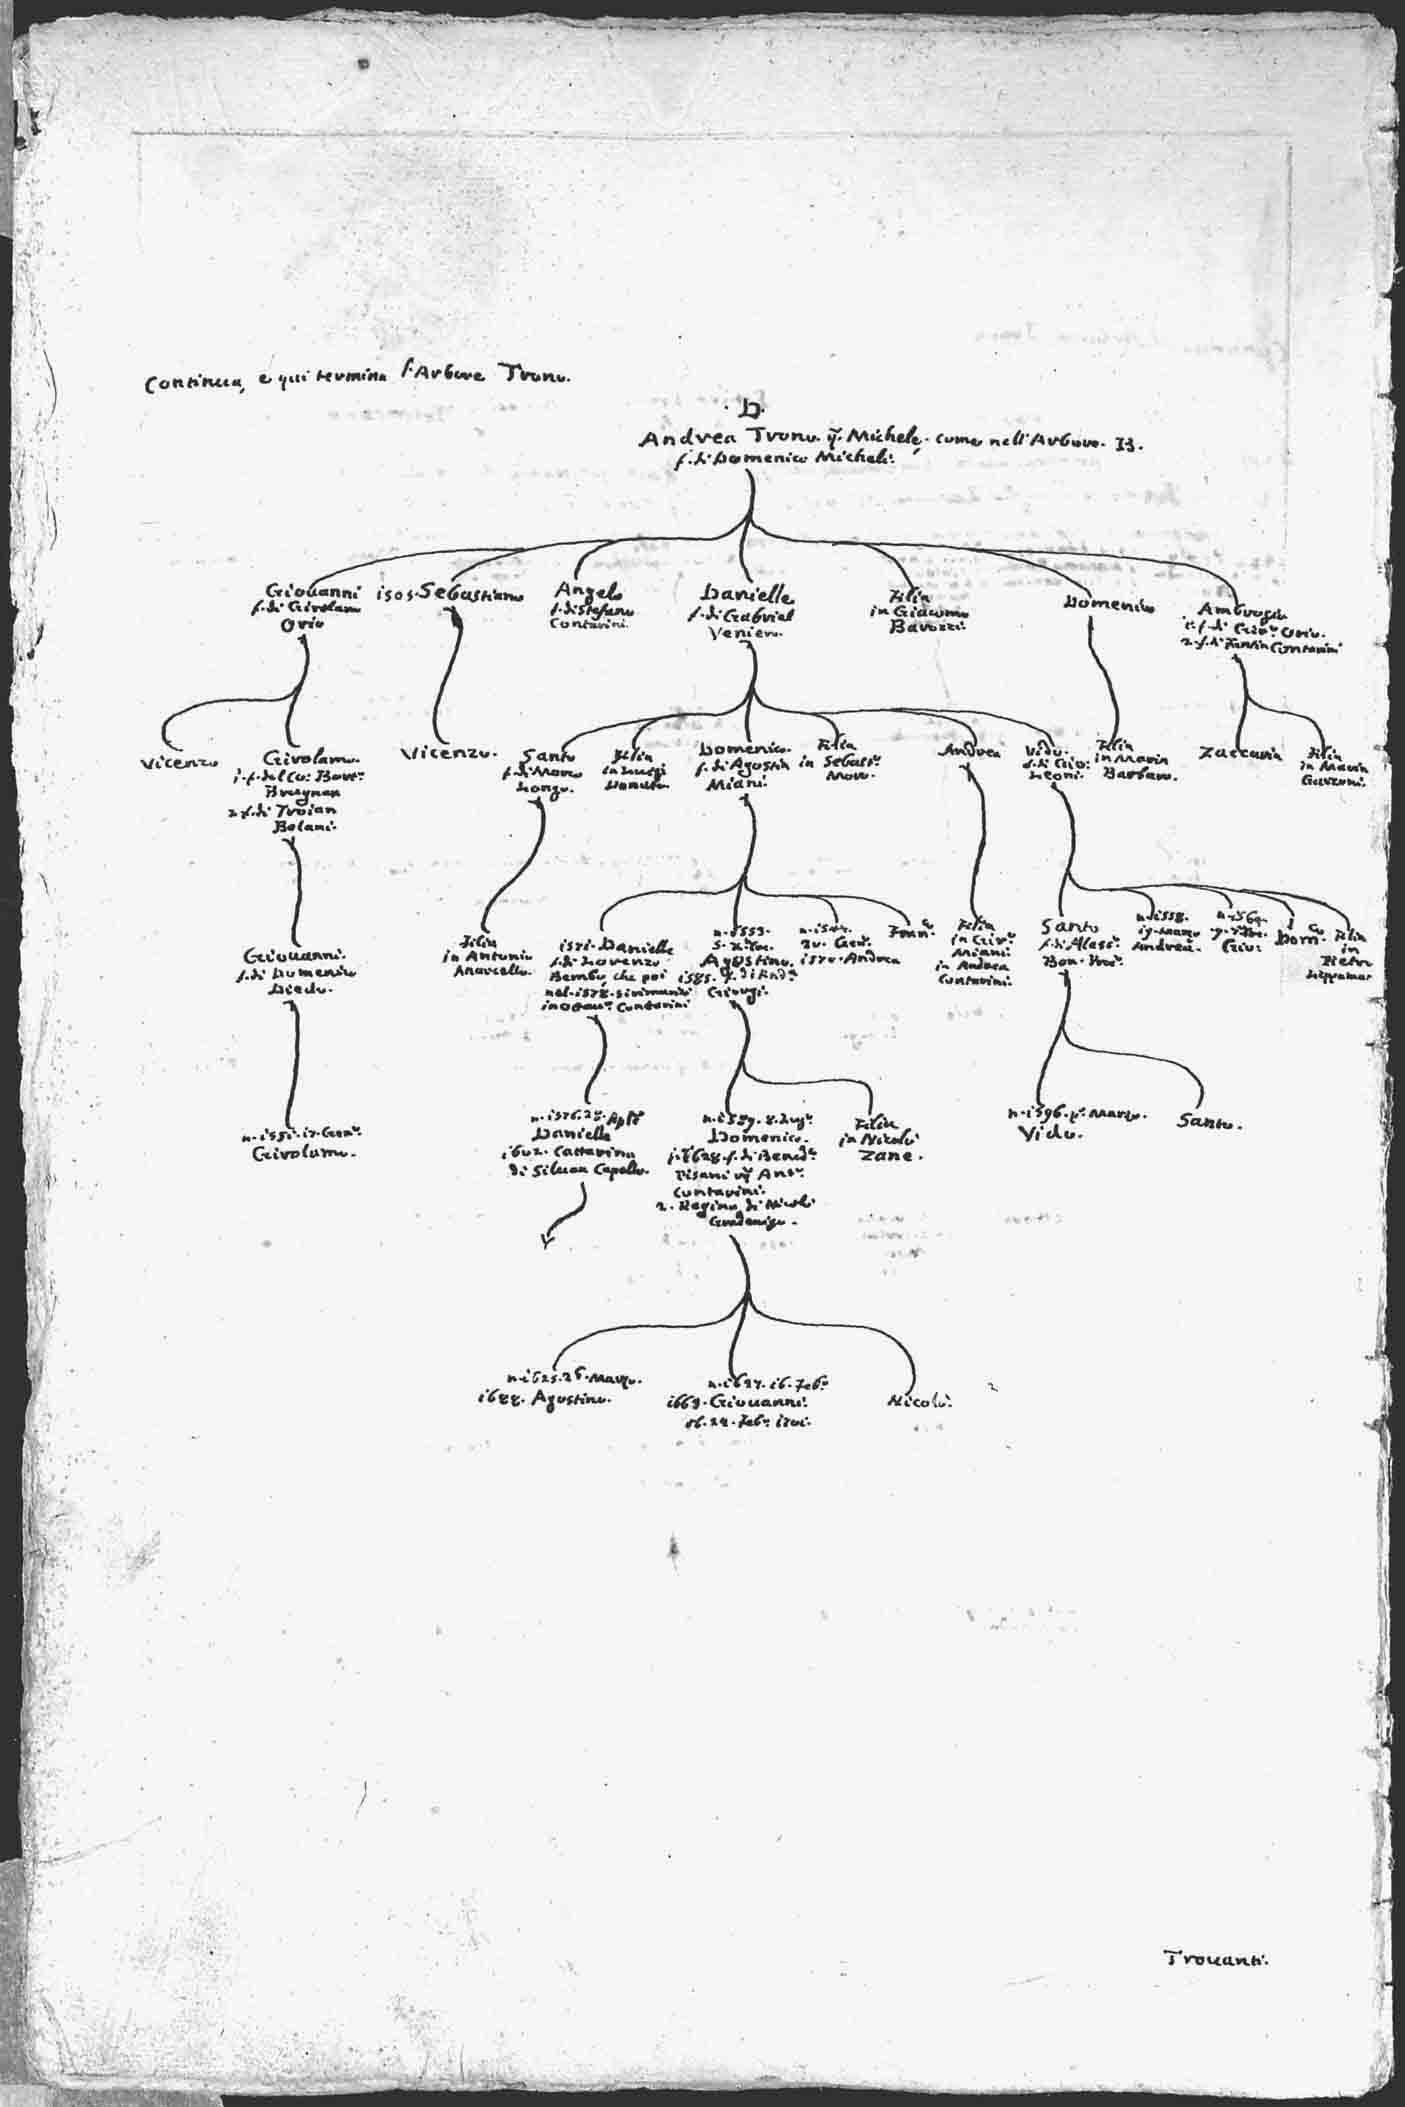 Continua, e qui termina l'Arbore Trono.
.D.
Andrea Trono. q. Michele. come nell'Arbore. B.
f. di Domenico Micheli.
Giouanni
f. di Girolamo
Orio
1505. Sebastiano
Angelo
f. di Stefano
Contarini.
Danielle
f. di Gabriel
Veniero.
Filia
in Giacomo
Barozzi.
Domenico
Ambrogio
1. f. di Gir.º Orio.
2. f. di Fantin Contarini
Vicenzo
Girolamo.
1. f. del Co: Bort.º
Brugnan
2. f. di Troian
Bolani.
Vicenzo.
Santo
f. di Marco
Longo.
Filia
in Luigi
Donato.
Domenico.
f. di Agostin
Miani.
Filia
in Sebast.º
Moro.
Andrea
Vido.
f. di Gio:
Leoni.
Filia
in Marin
Barbaro.
Zaccaria
Filia
in Marin
Garzoni.
Giouanni.
f. di Domenico
Diedo.
Filia
in Antonio
Marcello.
1571. Danielle
f. di Lorenzo
Bembo, che poi
nel. 1578. si rimaritò
in Ottau.º Contarini
n. 1553.
5. X.bre.
Agostino.
1585. f. di And.ª
Giorgi.
20. Gen.º
1570. Andrea
Fran.co
Filia
in Gir.º
Miani.
in Andrea
Contarini.
Santo
f. di Aless.º
Bon.
n. 1558.
19. Marzo
Andrea.
Gio:
Dom.co
Filia
in
Pietro
Lippamano
n. 1551. 17. Gen.º
Girolamo.
n. 1576. 28. Aple
Danielle
1602. Cattarina
di Siluan Capello.
n. 1589. 8. Lug.º
Domenico.
1. 1628. f. di Bened.º
Pisani q. Ant.º
Contarini.
2. Regina di Nicolò
Gradenigo.
Filia
in Nicolò
Zane.
n. 1596. p.º Marzo.
Vido.
Santo.
n. 1625. 26. Marzo.
1688. Agostino.
n. 1627. 16. Feb.º
1669. Giouanni.
ob. 24. Feb.º 1701.
Nicolò.
Trouanti.